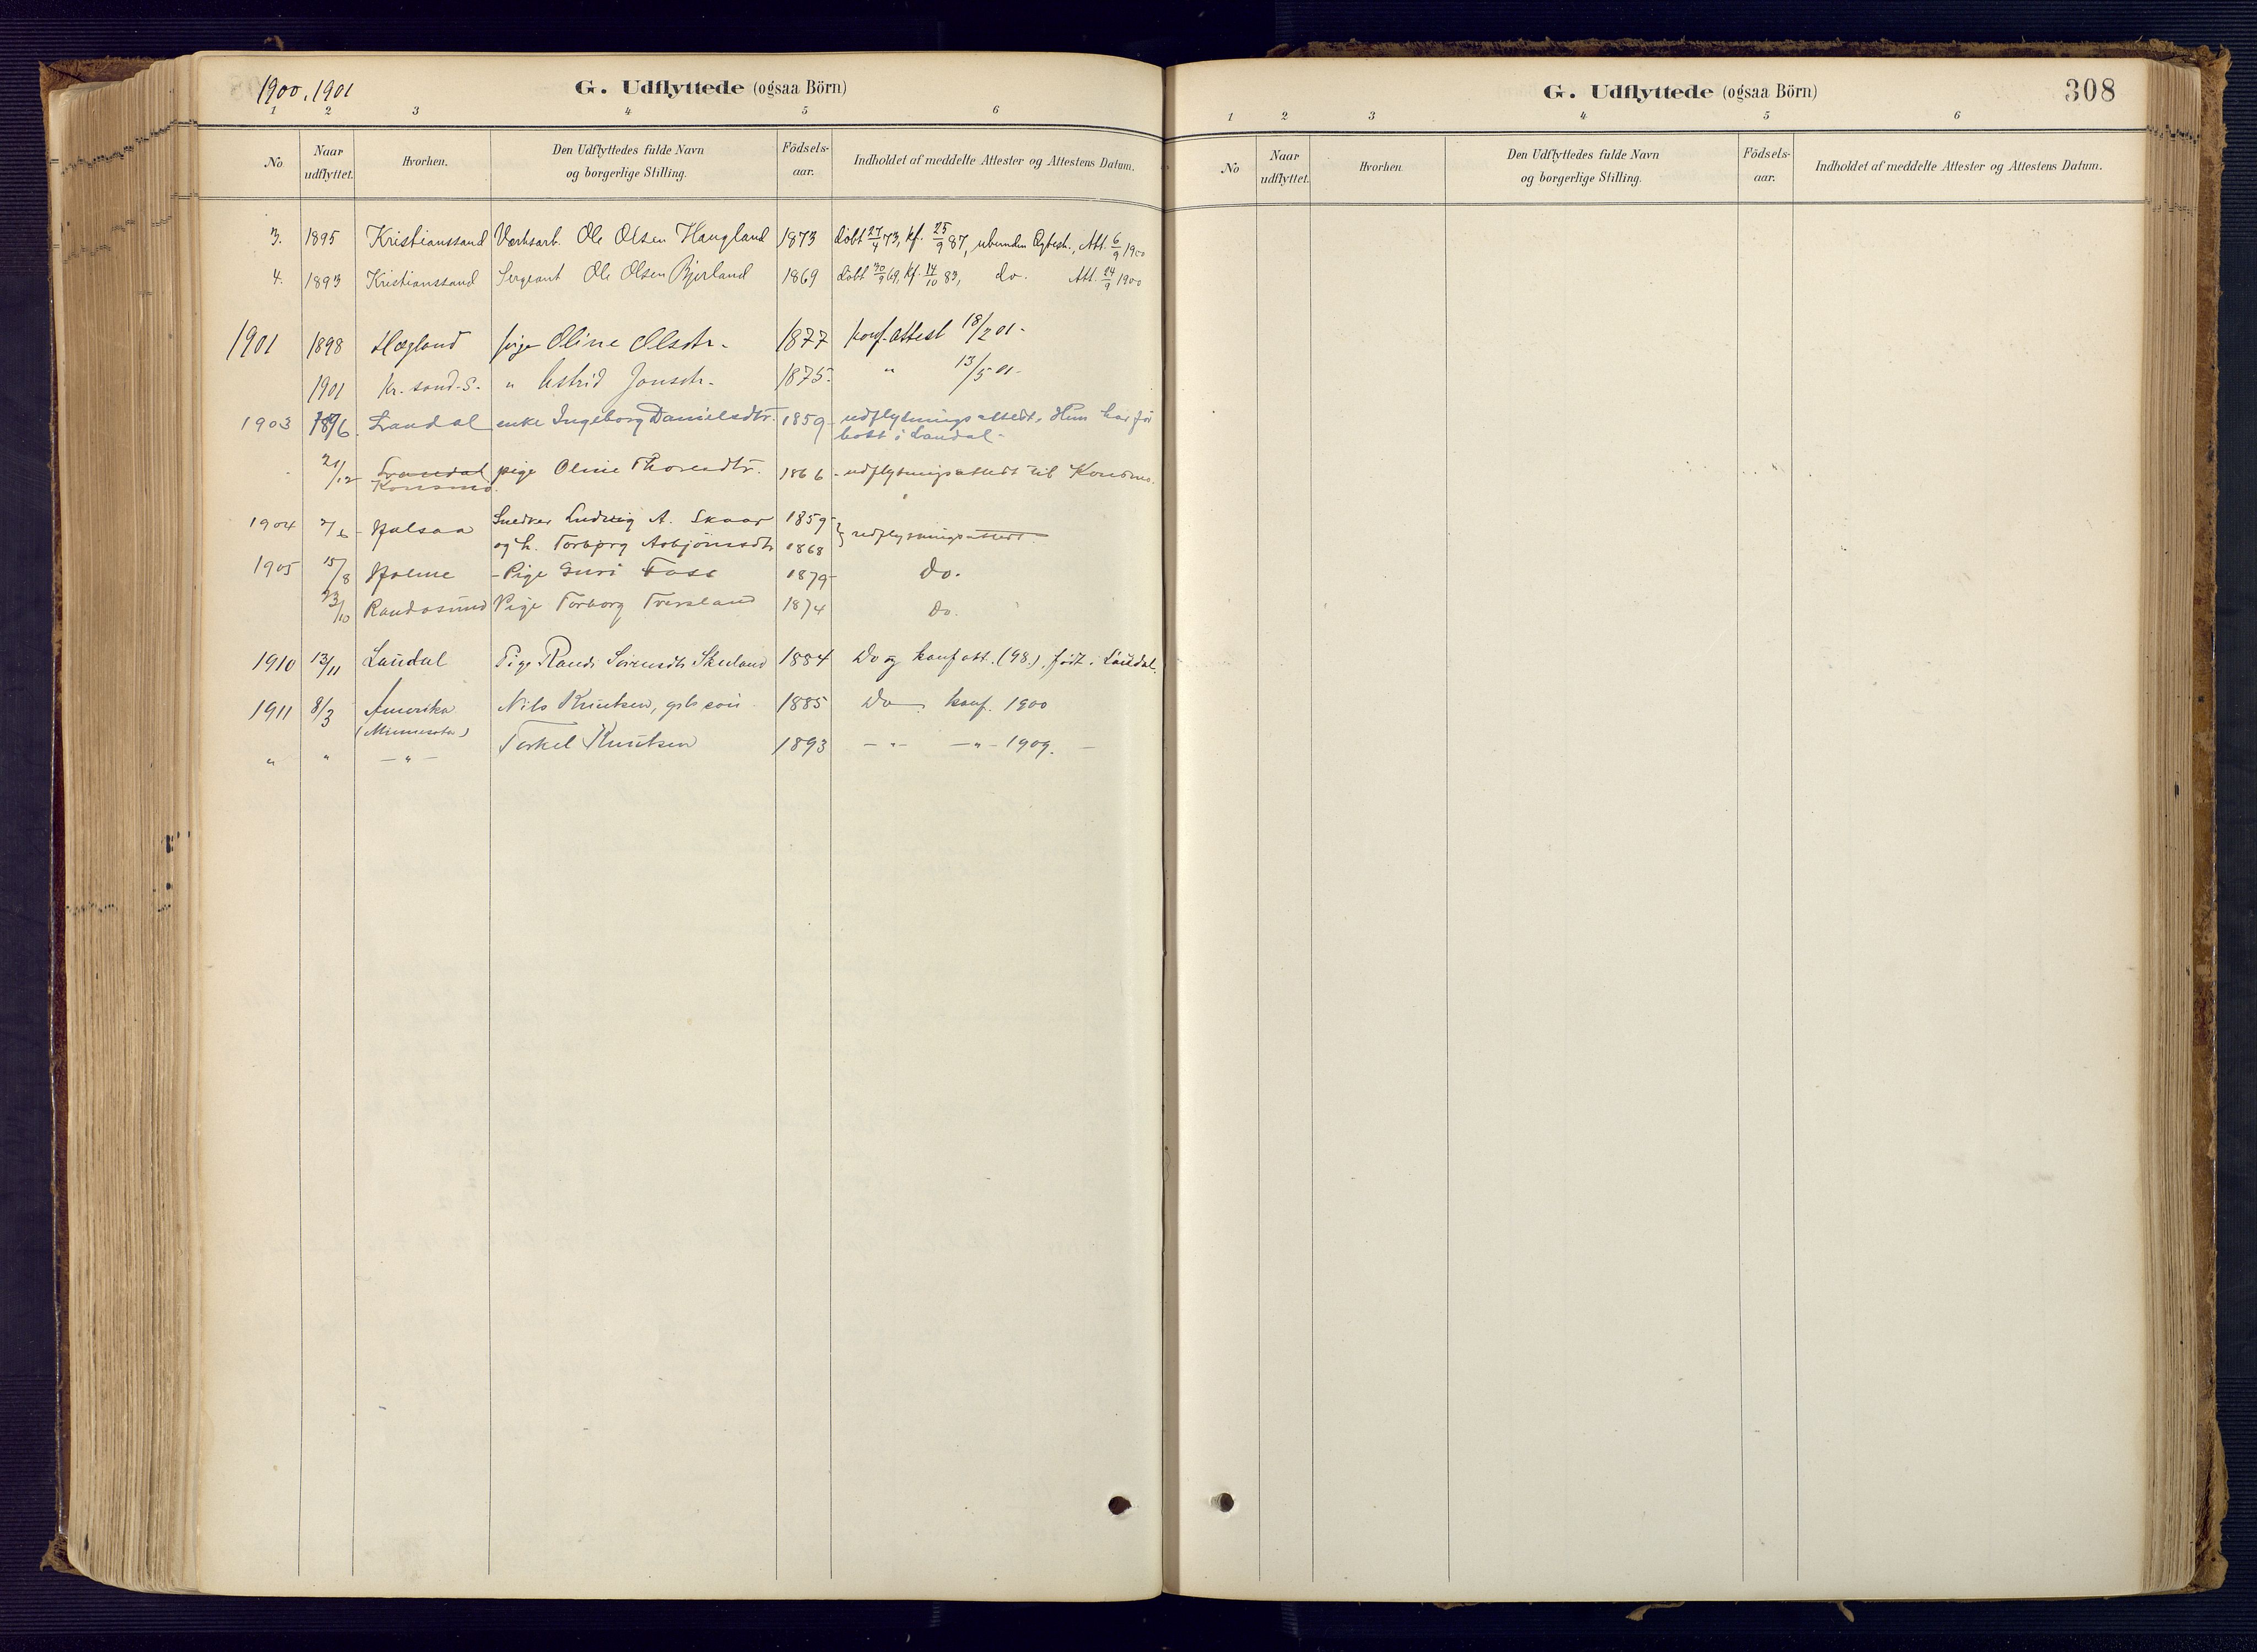 1900, 1901
G. Udflyttede (ogsaa Börn)
1 2 3 4 5 6
No Naar udflyttet. Hvorhen. Den Udflyttedes fulde Navn og borgerlige Stilling. Födsels-aar. Indholdet af meddelte Attester og Attestens Datum.
3. 1895 Kristianssand Værksarb. Ole Olsen Haugland 1873 döbt 27/4 73, kf. 25/9 87, ubunden Ægtesk., Att. 6/9 1900
4. 1893 Kristianssand Sergeant Ole Olsen Bjerland 1869 döbt 30/9 69, kf. 14/10 83, do. Att. 24/9 1900
1901 1898 Høgland pige Oline Olsdtr. 1877 konf.attest 18/2 01.
1901 Kr.sand.S. " Astrid Jonsdtr. 1875. " 13/5 01.
1903 1896. Laudal enke Ingeborg Danielsdtr. 1859 - udflytningsattest. Hun har før
bott i Laudal -
21/12 Laudal pige Oline Thorendtr. 1866 - udflytningsattest til Konsmo.
Konsmo.
1904 7/6 - Halsaa Snedker Ludvig A. Skaar 1859 } udflytningsattest
og h. Torbjørg Asbjörnsdtr 1868
1905 15/8 Holme - Pige Guri Foss 1879 - Do.
23/10 Randøsund Pige Torborg Tversland 1874 Do.
1910 13/11 Laudal Pige Randi Sørensdtr Skuland 1884 Do og konf att. (98). født i Laudal.
1911 8/3 Amerika Nils Knutsen, gbs søn 1885 Do konf. 1900
(Minnesota)
" " - " - Torkel Knutsen 1893 - " - - " - 1909. -
G. Udflyttede (ogsaa Börn) 308
1 2 3 4 5 6
No Naar udflyttet. Hvorhen. Den Udflyttedes fulde Navn og borgerlige Stilling. Födsels-aar. Indholdet af meddelte Attester og Attestens Datum.